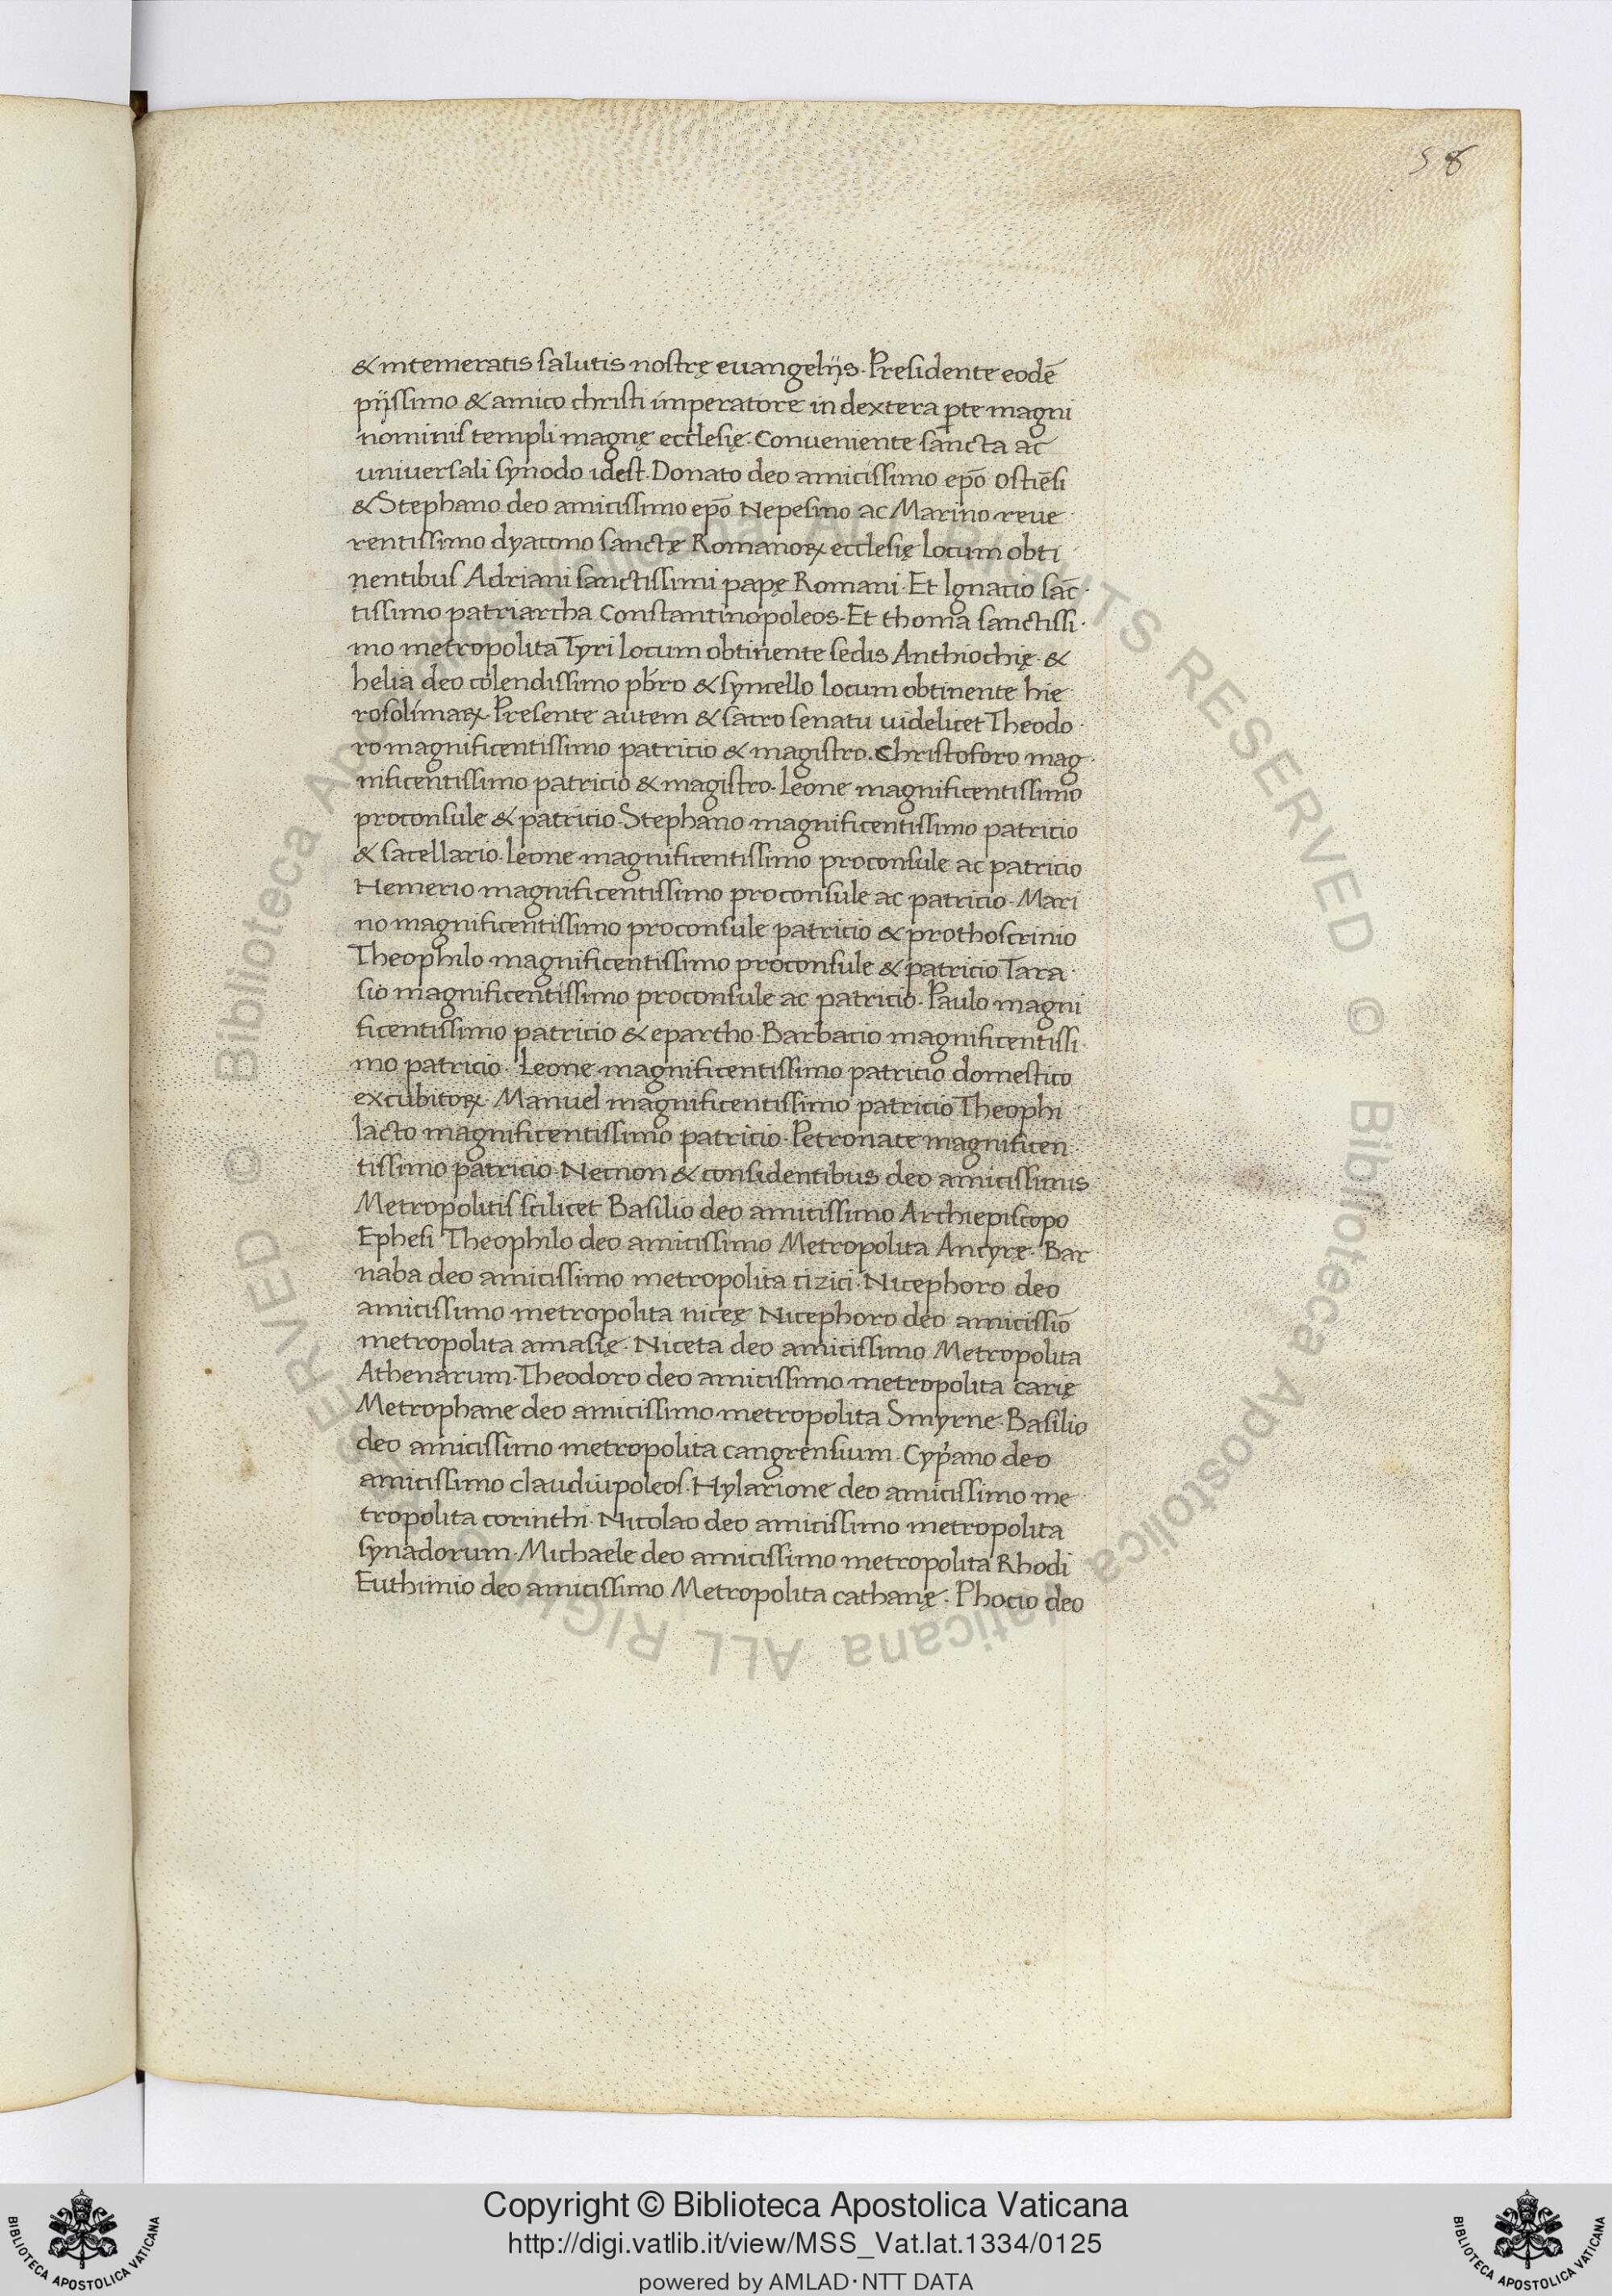 58
& intemeratis salutis nostrę euangelijs. Presidente eodē
pijssimo & amico christi imperatore in dextera ꝑte magni
nominis templi magnę ecclesię. Conueniente sancta ac
uniuersali synodo idest. Donato deo amicissimo ep̄o Ostiēsi
& Stephano deo amicissimo ep̄o Nepesino ac Marino reue
rentissimo dyacono sanctę Romanoꝝ ecclesię locum obti
nentibus Adriani sanctissimi papę Romani. Et Ignatio sāc
tissimo patriarcha Constantinopoleos. Et thoma sanctissi
mo metropolita Tyri locum obtinente sedis Anthiochię. &
helia deo colendissimo pb̄ro & syncello locum obtinente hie
rosolimaꝝ. Presente autem & sacro senatu uidelicet Theodo
ro magnificentissimo patricio & magistro. Christoforo mag
nificentissimo patricio & magistro. Leone magnificentissimo
proconsule & patricio. Stephano magnificentissimo patricio
& sacellario. Leone magnificentissimo proconsule ac patricio
Hemerio magnificentissimo proconsule ac patricio. Mari
no magnificentissimo proconsule patricio & prothoscrinio
Theophilo magnificentissimo proconsule & patricio Tara
sio magnificentissimo proconsule ac patricio. Paulo magni
ficentissimo patricio & epartho. Barbacio magnificentissi
mo patricio. Leone magnificentissimo patricio domestico
excubitoꝝ. Manuel magnificentissimo patricio Theophi
lacto magnificentissimo patricio. Petronate magnificen
tissimo patricio. Necnon & considentibus deo amicissimis
Metropolitis scilicet Basilio deo amicissimo Archiepiscopo
Ephesi Theophilo deo amicissimo Metropolita Ancyrę. Bar
naba deo amicissimo metropolita cizici. Nicephoro deo
amicissimo metropolita niceę Nicephoro deo amicissīo
metropolita amasię. Niceta deo amicissimo Metropolita
Athenarum. Theodoro deo amicissimo metropolita carię
Metrophane deo amicissimo metropolita Smyrne. Basilio
deo amicissimo metropolita cangrensium. Cyp̄ano deo
amicissimo claudiupoleos. Hylarione deo amicissimo me
tropolita corinthi. Nicolao deo amicissimo metropolita
synadorum. Michaele deo amicissimo metropolita Rhodi
Euthimio deo amicissimo Metropolita cathanę. Phocio deo
Copyright © Biblioteca Apostolica Vaticana
http://digi.vatlib.it/view/MSS_Vat.lat.1334/0125
powered by AMLAD·NTT DATA
BIBLIOTECA APOSTOLICA VATICANA
BIBLIOTECA APOSTOLICA VATICANA
© Biblioteca Apostolica Vaticana ALL RIGHTS RESERVED
© Biblioteca Apostolica Vaticana ALL RIGHTS RESERVED